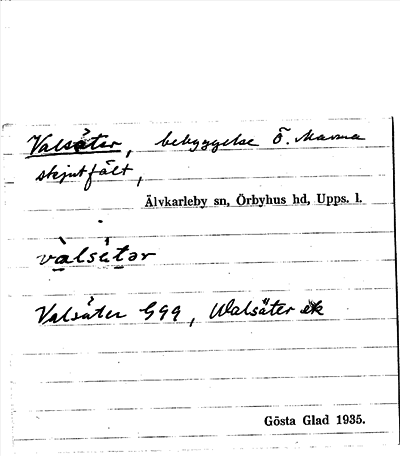 Valsäter, bebyggelse ö. Marma
skjutfält,
Älvkarleby sn, Örbyhus hd, Upps. l.
vàlsǻtər
Valsäter G99, Walsäter ek
Gösta Glad 1935.